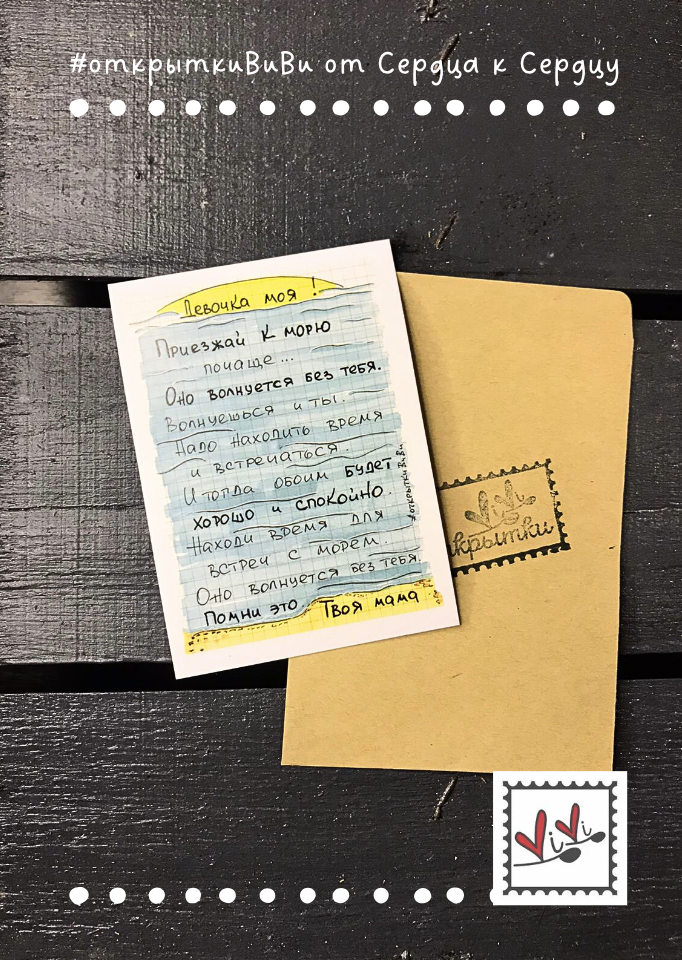 #открыткиВиВи от Сердца к Сердцу
Девочка моя!
Приезжай к морю
почаще...
Оно волнуется без тебя.
Волнуешься и ты.
Надо находить время
и встречаться.
И тогда обоим будет
хорошо и спокойно.
Находи время для
встреч с морем.
Оно волнуется без тебя.
Помни это Твоя мама
#открыткиВиВи
ViVi
крытки
ViVi